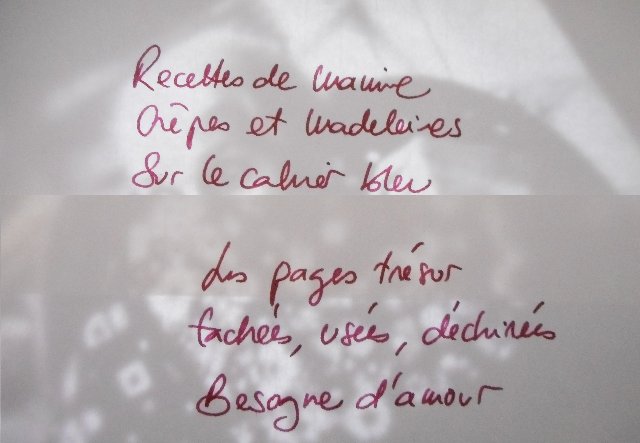 Recettes de mamine
Crêpes et madeleines
Sur le cahier bleu
Les pages trésor
tachées, usées, déchirées
Besogne d'amour